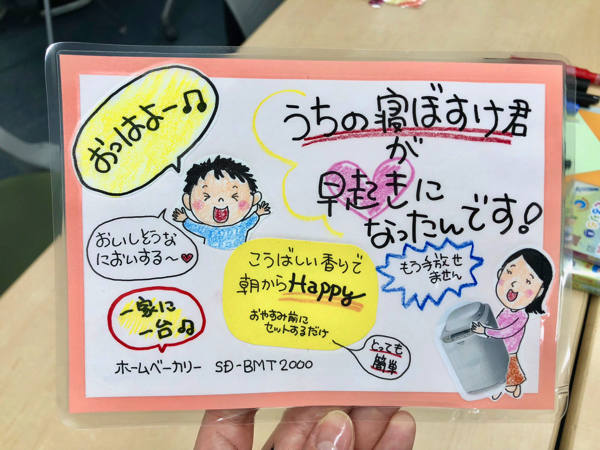 おっはよー♫
うちの寝ぼすけ君
が
早起きに
なったんです!
おいしそうな
においする〜♥
こうばしい香りで
朝からHappy
おやすみ前に
セットするだけ
もう手放せ
ません
一家に
一台♫
とっても
簡単
ホームベーカリー SD-BMT2000